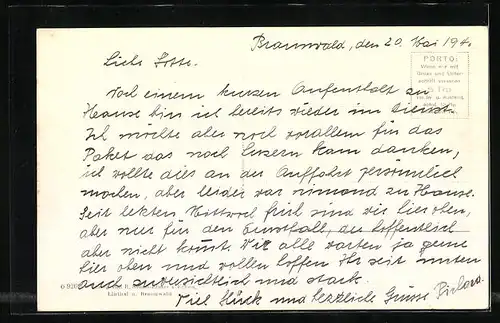 Braunwald, den 20. Mai 194.
Liebe Lotte.
PORTO:
Wenn nur mit
Gruss und Unter-
schrift versehen
Nach einem kurzen Aufenthalt zu
Hause bin ich bereits wieder im Dienst.
Ich möchte aber noch vorallem für das
Paket das nach Luzern kam danken,
ich wollte dies an der Auffahrt persönlich
machen, aber leider war niemand zu Hause.
Seit letzten Mittwoch früh sind wir hier oben,
aber nur für den Ernstfall, der hoffentlich
aber nicht kommt. Wir alle warten ja gerne
hier oben und wollen hoffen Ihr seit unten
auch zuversichtlich und stark.
Viel Glück und herzliche Grüsse Richard.
Linthal u. Braunwald